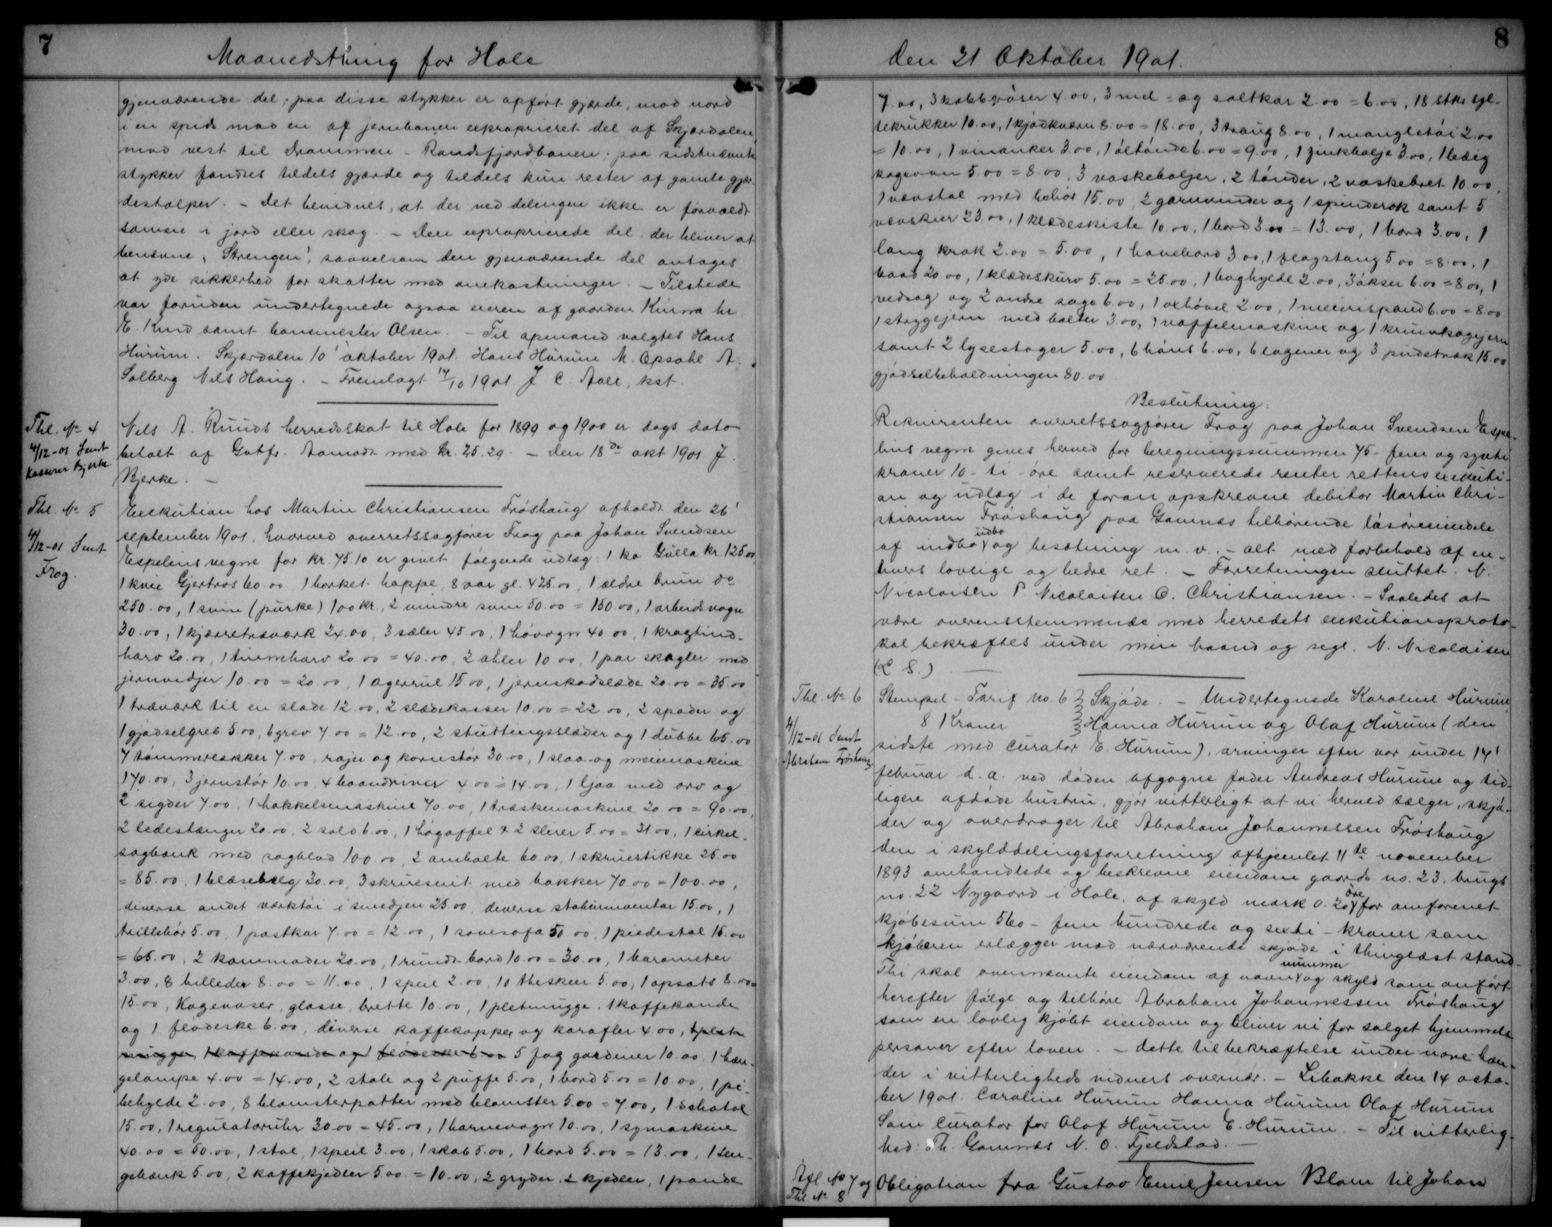 7
Maanedsthing for Hole
gjenværende del; paa disse stykker er opført gjærde, mod nord
i en spids mod en af jernbanen exproprieret del af Skjærdalen
mod vest til Drammen - Randsfjordbanen; paa sidstnævnte
stykker fandtes tildels gjærde og tildels kun rester af gamle gjær-
destolper. - Det bevidnes, at der ved delingen ikke er forvoldt
sameie i jord eller skog. - Den exproprierede del der bliver at
benævne „Strengen", saavelsom den gjenværende del antages
at yde sikkerhed for skatter med omkostninger. - Tilstede
var foruden undertegnede ogsaa eieren af gaarden hr.
E. samt banemester Olsen. - Til opmand valgtes Hans
Hurum. Skjærdalen 10' oktober 1901. Hans Hurum M. Opsahl A.
Solberg Nils Haug. - Fremlagt 17/10 1901 J C. Aall, kst.
Thl. No 4
4/12-01 Sendt
Kasserer Bjerke
Nils A. Ruuds herredsskat til Hole for 1899 og 1900 er dags dato
betalt af Gotfr. Aamodt med kr. 25.29. - Den 18de okt 1901 J.
Bjerke. -
Thl. No 5
4/12-01 Sendt
Frog.
Execution hos Martin Christiansen Frøshaug afholdt den 26'
september 1901, hvorved overretssagfører Frog paa Johan Svendsen
Espelens vegne for kr. 75.10 er givet følgende udlæg: 1 ko Gulla kr. 125.00
1 kvie Gjertros 60.00 1 borket hoppe, 8 aar gl. 425.00, 1 ældre brun do
250.00, 1 svin (purke) 100 kr., 2 mindre svin 50.00 = 150.00, 1 arbeidsvogn
30.00, 1 kjærreværk 24.00, 3 sæler 45.00, 1 høvogn 40.00, 1 kragtind-
harv 20.00, 1 tinneharv 20.00 = 40.00, 2 10.00, 1 par skagler med
jernvidjer 10.00 = 20.00, 1 agerrul 15.00, 1 jernskodslæde 20.00 = 35.00
1 træværk til en slæde 12.00, 2 slædekasser 10.00 = 22.00, 2 spader og
1 gjødselgreb 5.00, 6 grev 7.00 = 12.00, 2 stuttingslæder og 1 dubbe 65.00
7 tømmerlæsker 7.00, rajer og kornstør 30.00, 1 slaa- og meiemaskine
170.00, 3 jernstør 10.00 4 haandriver 4.00 = 14.00, 1 ljaa med orv og
2 sigder 7.00, 1 hakkelsmaskine 70.00, 1 træskemaskine 20.00 = 90.00,
2 ledestænger 20.00, 2 sold 6.00, 1 høgaffel & 2 5.00 = 31.00, 1 cirkel-
sagbænk med sagblad 100.00, 2 ambolte 60.00, 1 skruestikke 25.00
= 85.00, 1 blæsebælg 30.00, 3 skruesnit med bakker 70.00 = 100.00,
diverse andet værktøi i smedjen 25.00, diverse staburinventar 15.00, 1
trillebør 5.00, 1 postkar 7.00 = 12.00, 1 sovesofa 50.00, 1 piedestal 15.00
= 65.00, 2 kommoder 20.00, 1 rundt bord 10.00 = 30.00, 1 barometer
3.00, 8 billeder 8.00 = 11.00, 1 speil 2.00, 10 theskeer 5.00, 1 opsats 8.00 =
15.00, Kagevaser, glasse, brette 10.00, 1 pletmugge, 1 kaffekande
og 1 flødeske 6.00, diverse kaffekopper og karafler 4.00, 1 plet-
mugge, 1 kaffekande og 1 flødeske 6.00 5 fag gardiner 10.00, 1 hæn-
gelampe 4.00 = 14.00, 2 stole og 2 puffe 5.00, 1 bord 5.00 = 10.00, 1 pi-
behylde 2.00, 8 blomsterpotter med blomster 5.00 = 7.00, 1 Schatol
15.00, 1 regulatoruhr 30.00 = 45.00, 1 barnevogn 10.00, 1 symaskine
40.00 = 50.00, 1 stol, 1 speil 3.00, 1 skab 5.00, 1 bord 5.00 = 13.00, 1 sen-
gebænk 5.00, 2 kaffekjedler 5.00 = 10.00, 2 gryder, 2 kjedler, 1 pande
8
Den 21 Oktober 1901.
7.00, 3 kobbgrøser 4.00, 3 mel- og saltkar 2.00 = 6.00, 18 stkr syl-
tekrukker 10.00, 1 kjødkværn 8.00 = 18.00, 3 traug 8.00, 1 mangletøi 2.00
= 10.00, 1 vinanker 3.00, 1 øltønde 6.00 = 9.00, 1 zinkbalje 3.00, 1 ledig
kageovn 5.00 = 8.00, 3 vaskebaljer, 2 tønder, 2 vaskebret 10.00,
1 vævstol med behør 15.00, 2 garnvinder og 1 spinderok samt 5
vævskier 23.00, 1 klædeskiste 10.00, 1 bord 3.00 = 13.00, 1 bord 3.00, 1
lang krak 2.00 = 5.00, 1 havebord 3.00, 1 flagstang 5.00 = 8.00, 1
baad 20.00, 1 klædeskurv 5.00 = 25.00, 1 boghylde 2.00, 3 økser 6.00 = 8.00, 1
vedsag og 2 andre sage 6.00, 1 oxhøvel 2.00, 1 meierispand 6.00 = 8.00
1 strygejern med bolter 3.00, 1 vaffelmaskine og 1 krumkagejern
samt 2 lysestager 5.00, 6 6.00, 6 lagener og 3 pudetræk 15.00
gjødselbeholdningen 80.00
Beslutning:
Rekvirenten overretssagfører Frog paa Johan Svendsen Espe-
lens vegne gives herved for beregningssummen 75 - fem og sytti
kroner 10 - ti - øre samt reserverede renter rettens executi-
on og udlæg i de foran opskrevne debitor Martin Chri-
stiansen Frøshaug paa Gomnæs tilhørende løsøreeiendele
udbo
af indbo & og besætning m. v. - alt med forbehold af en-
hvers lovlige og bedre ret. - Forretningen sluttet. N.
Nicolaisen P Nicolaisen O. Christiansen. - Saaledes at
være overensstemmende med herredets executionsproto-
kol bekræftes under min haand og segl. N. Nicolaisen
(L S.)
Thl. No 6
4/12-01 Sendt
Abraham Frøshaug
Stempel - Tarif no. 6 Skjøde. - Undertegnede Karoline Hurum,
8 Kroner Hanna Hurum og Olaf Hurum (den
sidste med curator E. Hurum), arvinger efter vor under 14'
februar d. a. ved døden afgagne fader Andreas Hurum og tid-
ligere afdøde hustru, gjør vitterligt at vi herved sælger, skjø-
der og overdrager til Abraham Johannessen Frøshaug
den i skylddelingsforretning afhjemlet 11te november
1893 omhandlede og beskrevne eiendom gaards no. 23, brugs
no. 22 Nygaard i Hole, af skyld mark 0.20 øre for omforenet
kjøbesum 560 - fem hundrede og sexti - kroner som
kjøberen erlægger mod nærværende skjøde i thinglæst stand -
nummer
Thi skal ovennævnte eiendom af navn & og skyld som anført
herefter følge og tilhøre Abraham Johannessen Frøshaug
som en lovlig kjøbt eiendom og bliver vi for salget hjemmels-
personer efter loven. - Dette til bekræftelse under vore hæn-
der i vitterligheds vidners overvær. - Libakke den 14 octo-
ber 1901. Caroline Hurum Hanna Hurum Olaf Hurum
Som curator for Olaf Hurum E. Hurum. - Til vitterlig-
hed: Th. Gomnæs N. O. Fjeldstad. -
Afl. No 7 og
Thl. No 8
Obligation fra Gustav Emil Jensen Blom til Johan